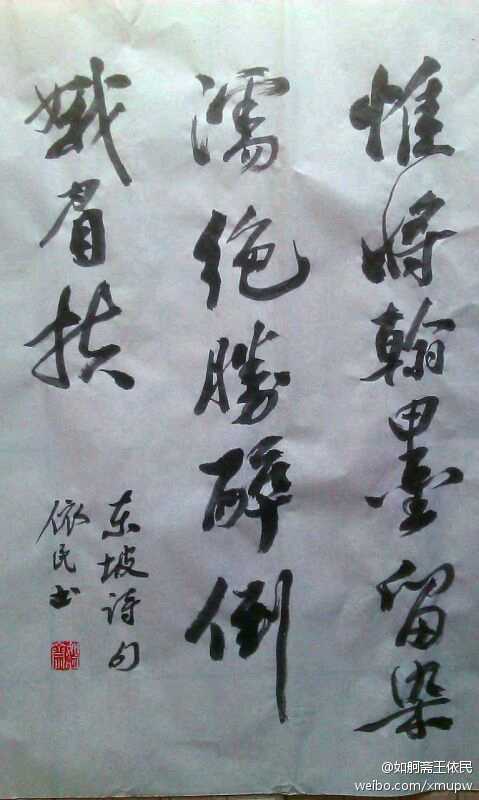 惟将翰墨留染
濡绝勝醉倒
娥眉扶
东坡诗句
依民书
@如舸斋王依民
weibo.com/xmupw